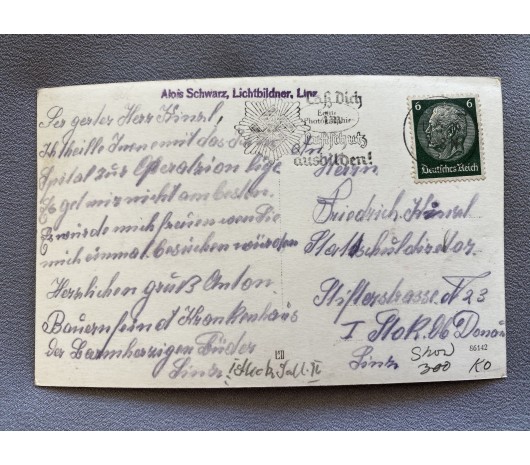 Alois Schwarz, Lichtbildner, Linz
Laß Dich
Luftschutz
ausbilden!
6 6
Deutsches Reich
Ser gerter Herr Hinsl,
Ich theille Innen mit das
Spital zur Operatrion lige
Es get mir nicht am besten.
Es würde mich freuen wen Sie
mich einmal besuchen würden
Herzlichen gruß Anton
Bauernfeindt Krankenhaus
der Barmherzigen Brüder
Linz
An
Herrn
Friedrich Hinsl
Statschuldirektor
Stifterstrasse N 23
I Stok. Ob Donau
Linz
66142
Show
300
KO